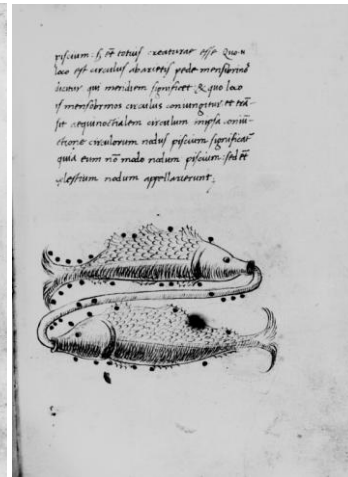 piscium: sʒ et̄ totius creaturae esse Quo n̄
loco est circulus abarietis pede mensorinos
dicitur qui meridiem significet & quo loco
is mensobrinos circulus coniungitur et trā-
sit aequinoctialem circulum inipsa coniū-
ctione circulorum nodus piscium significat̄
quia eum nō modo nodum piscium: sed et̄
cælestium nodum appellauerunt;